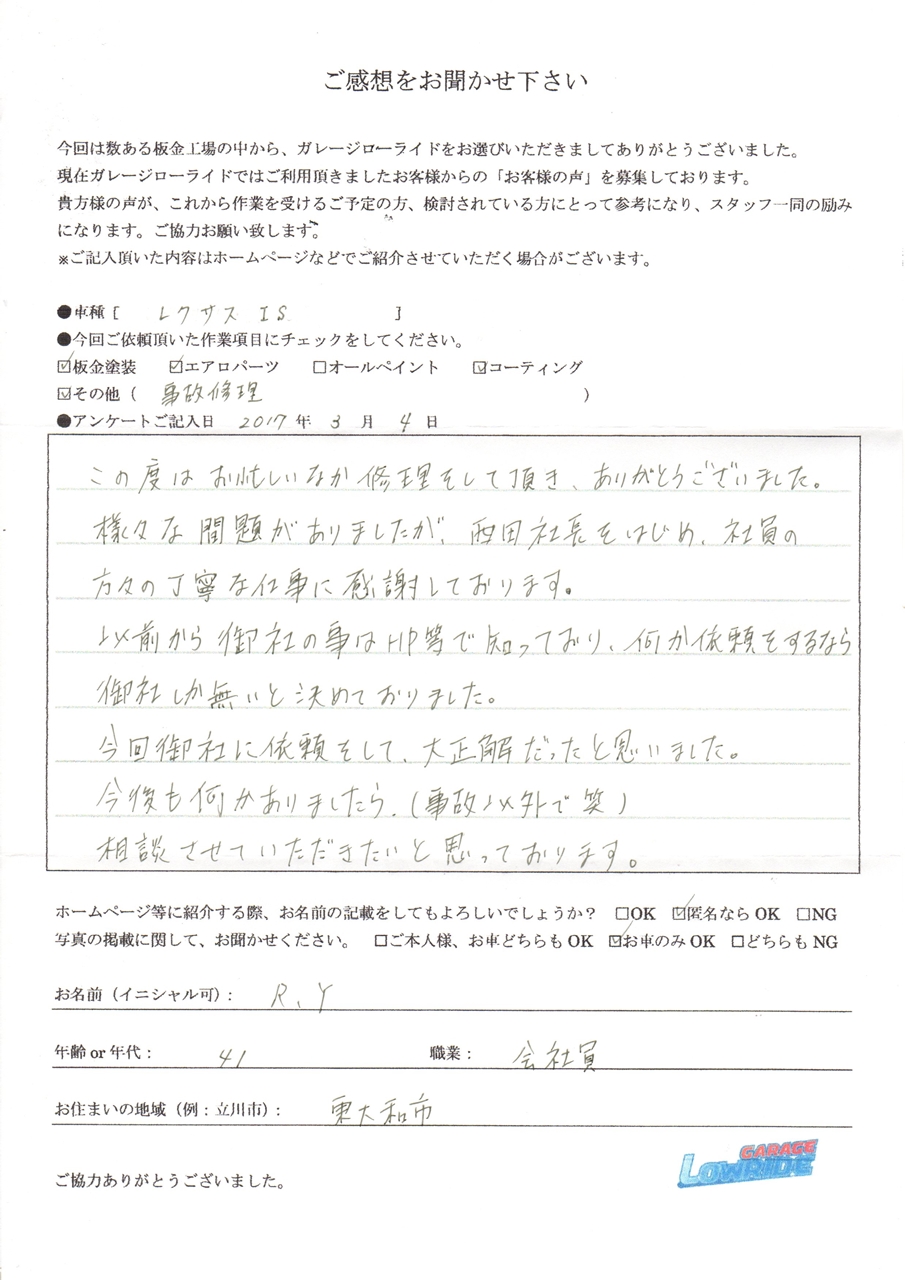 ご感想をお聞かせ下さい
今回は数ある板金工場の中から、ガレージローライドをお選びいただきましてありがとうございました。
現在ガレージローライドではご利用頂きましたお客様からの「お客様の声」を募集しております。
貴方様の声が、これから作業を受けるご予定の方、検討されている方にとって参考になり、スタッフ一同の励み
になります。ご協力お願い致します。
※ご記入頂いた内容はホームページなどでご紹介させていただく場合がございます。
●車種[ レクサス IS ]
●今回ご依頼頂いた作業項目にチェックをしてください。
☑板金塗装 ☑エアロパーツ □オールペイント ☑コーティング
☑その他( 事故修理 )
●アンケートご記入日 2017 年 3 月 4 日
この度はお忙しいなか修理をして頂き、ありがとうございました。
様々な問題がありましたが、西田社長をはじめ、社員の
方々の丁寧な仕事に感謝しております。
以前から御社の事はHP等で知っており、何か依頼をするなら
御社しか無いと決めておりました。
今回御社に依頼をして、大正解だったと思いました。
今後も何かありましたら、(事故以外で笑)
相談させていただきたいと思っております。
ホームページ等に紹介する際、お名前の記載をしてもよろしいでしょうか? □OK ☑匿名なら OK □NG
写真の掲載に関して、お聞かせください。 □ご本人様、お車どちらも OK ☑お車のみ OK □どちらも NG
お名前(イニシャル可): R、Y
年齢 or 年代: 41 職業: 会社員
お住まいの地域(例:立川市): 東大和市
GARAGE
LOWRIDE
ご協力ありがとうございました。